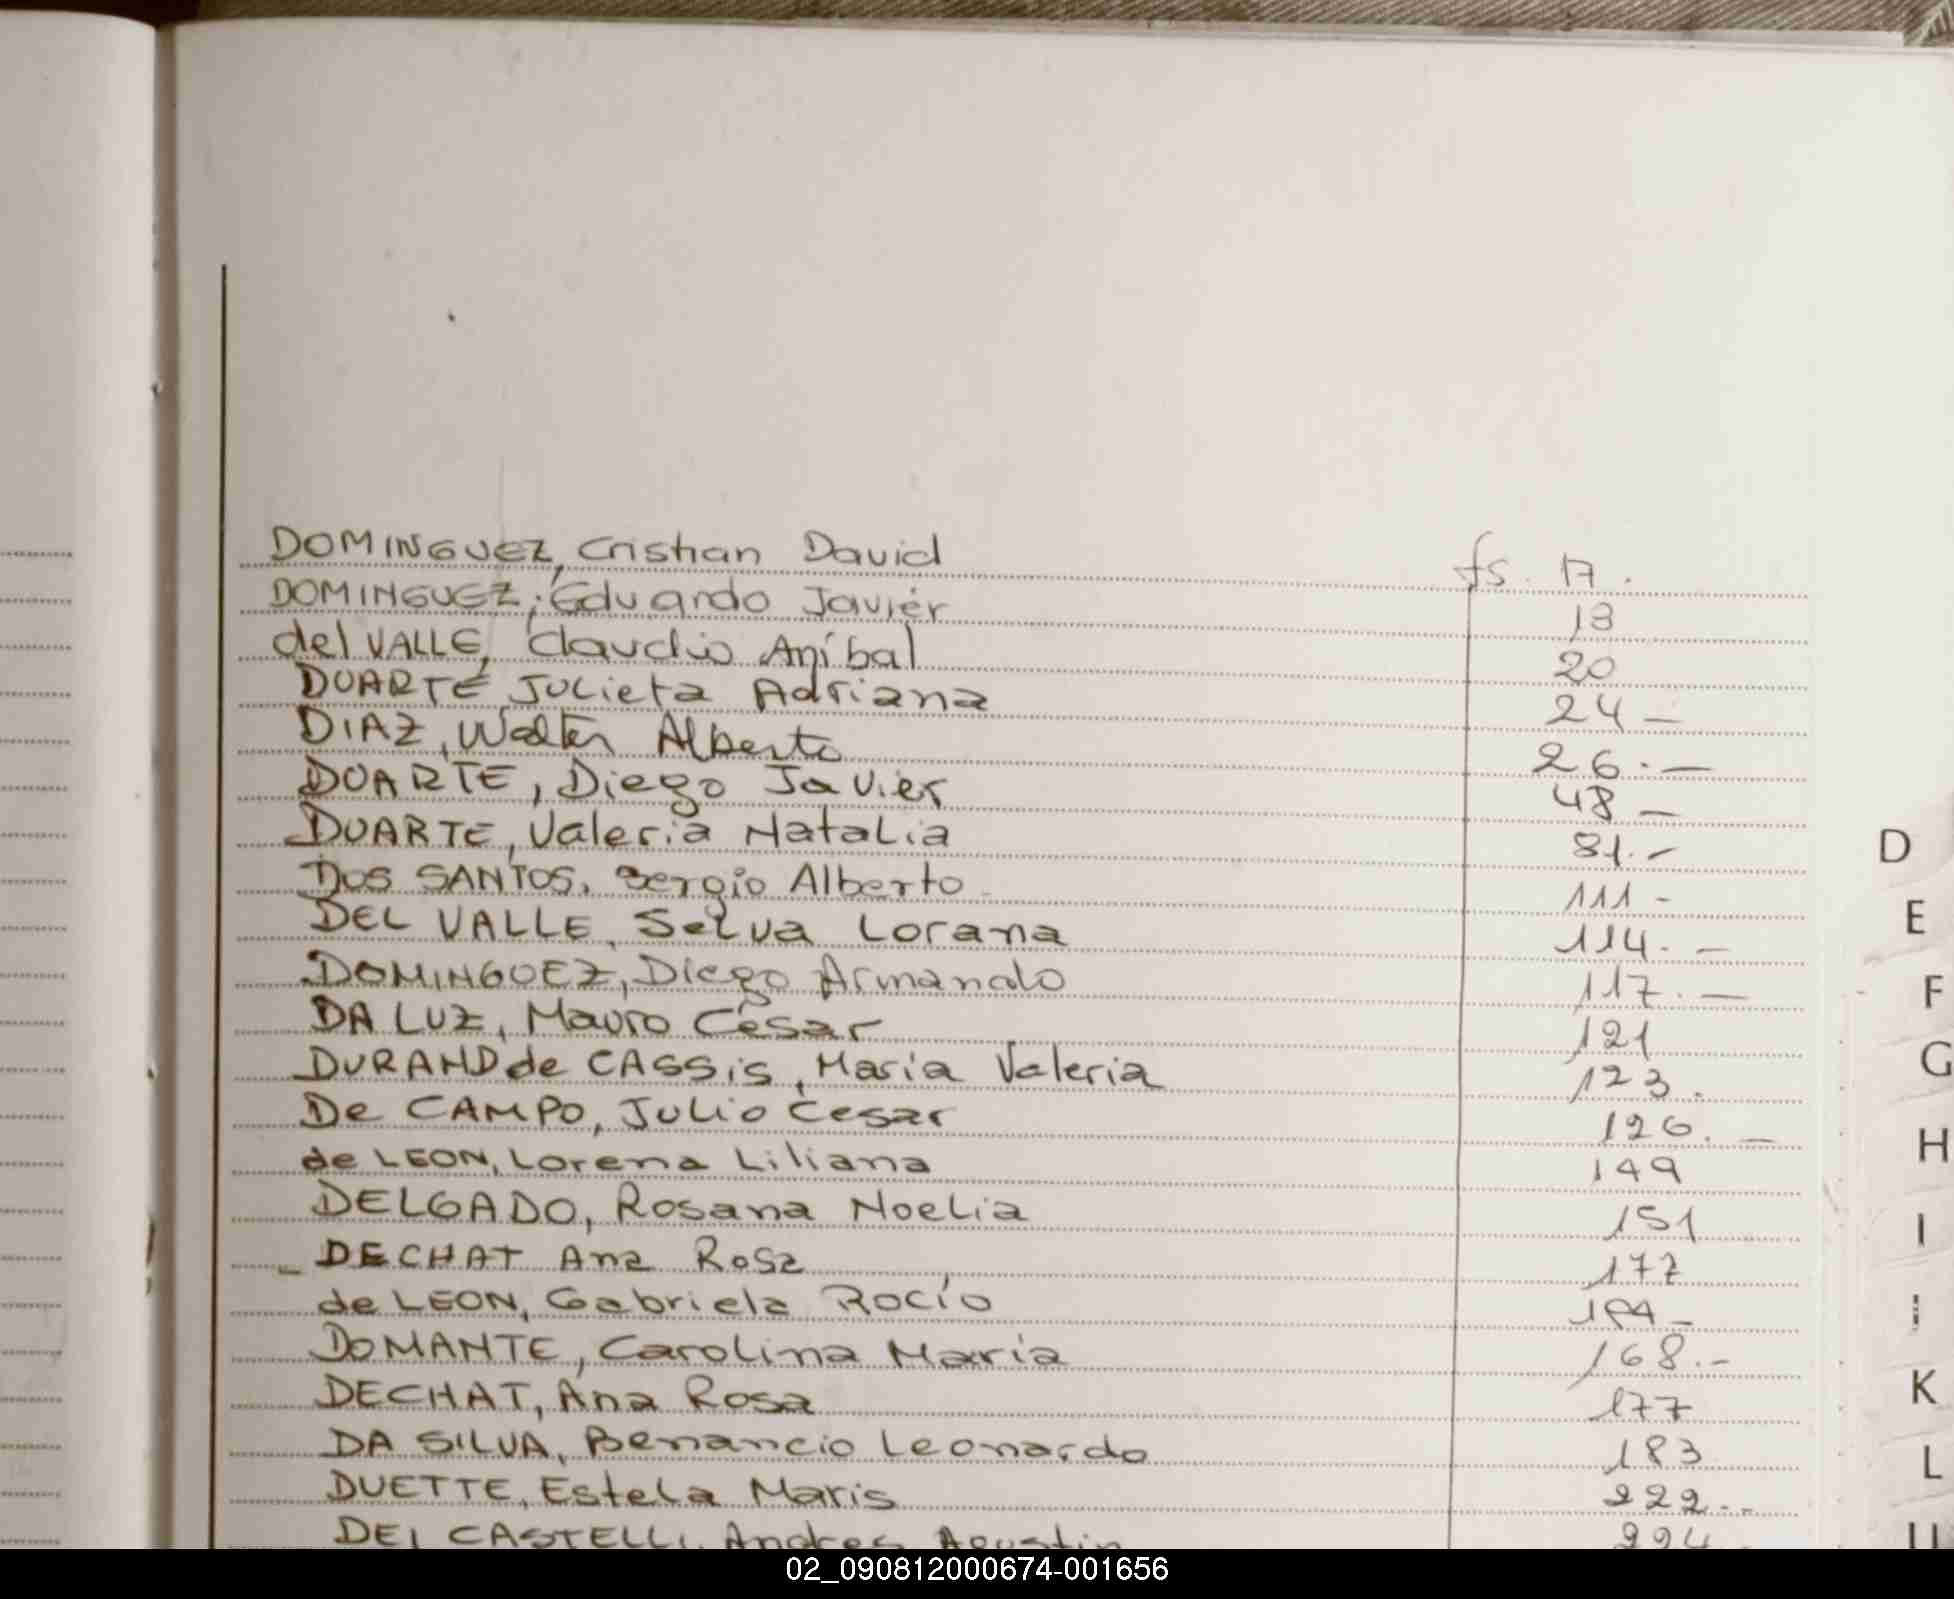 DOMINGUEZ, Cristian David fs. 17.
DOMINGUEZ, Eduardo Javier 18
del VALLE, Claudio Aníbal 20
DUARTE, Julieta Adriana 24 —
DIAZ, Walter Alberto 26.—
DUARTE, Diego Javier 48 —
DUARTE, Valeria Natalia 81.-
DOS SANTOS, Sergio Alberto 111 -
DEL VALLE, Selva Lorana 114.-
DOMINGUEZ, Diego Armando 117.—
DA LUZ, Mauro César 121
DURAND de CASSIS, María Valeria 123.
De CAMPO, Julio Cesar 126.—
de LEON, Lorena Liliana 149
DELGADO, Rosana Noelia 151
- DECHAT Ana Rosa 177
de LEON, Gabriela Rocío
DOMANTE, Carolina María 168.-
DECHAT, Ana Rosa 177
DA SILVA, Benancio Leonardo 183
DUETTE, Estela Maris 222.-
DEL CASTELLI, Andres Agustin 224
D
E
F
G
H
I
K
L
02_090812000674-001656